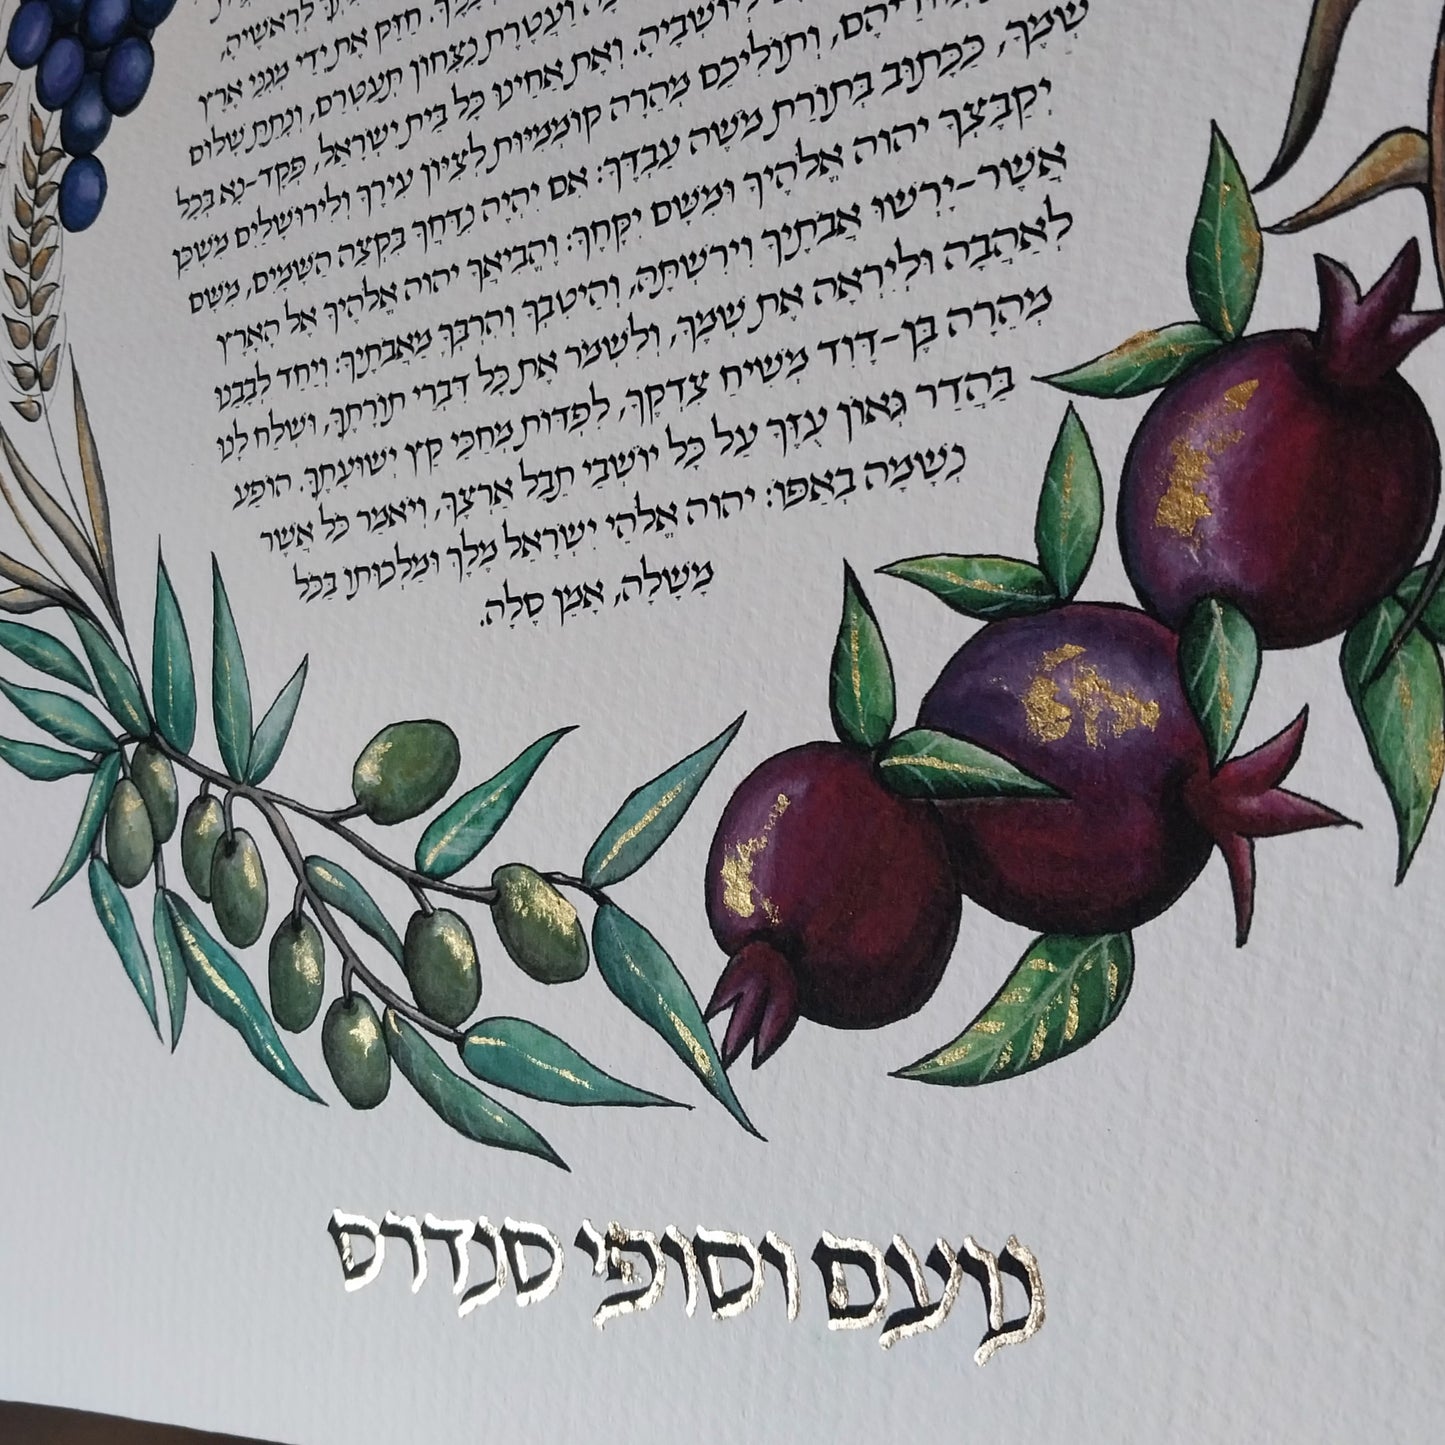 לְרָאשֶׁיהָ,
חַזֵּק אֶת יְדֵי מְגִנֵּי אֶרֶץ
וַעֲטֶרֶת נִצָּחוֹן תְּעַטְּרֵם, וְנָתַתָּ שָׁלוֹם
לְיוֹשְׁבֶיהָ. וְאֶת אַחֵינוּ כָּל בֵּית יִשְׂרָאֵל, פְּקָד-נָא בְּכָל
וְתוֹלִיכֵם מְהֵרָה קוֹמְמִיּוּת לְצִיּוֹן עִירֶךָ וְלִירוּשָׁלַיִם מִשְׁכַּן
שְׁמֶךָ, כַּכָּתוּב בְּתוֹרַת מֹשֶׁה עַבְדֶּךָ: אִם יִהְיֶה נִדַּחֲךָ בִּקְצֵה הַשָּׁמַיִם, מִשָּׁם
יְקַבֶּצְךָ יהוה אֱלֹהֶיךָ וּמִשָּׁם יִקָּחֶךָ: וֶהֱבִיאֲךָ יהוה אֱלֹהֶיךָ אֶל הָאָרֶץ
אֲשֶׁר-יָרְשׁוּ אֲבֹתֶיךָ וִירִשְׁתָּהּ, וְהֵיטִבְךָ וְהִרְבְּךָ מֵאֲבֹתֶיךָ: וְיַחֵד לְבָבֵנוּ
לְאַהֲבָה וּלְיִרְאָה אֶת שְׁמֶךָ, וְלִשְׁמֹר אֶת כָּל דִּבְרֵי תוֹרָתֶךָ, וּשְׁלַח לָנוּ
מְהֵרָה בֶּן-דָּוִד מְשִׁיחַ צִדְקֶךָ, לִפְדּוֹת מְחַכֵּי קֵץ יְשׁוּעָתֶךָ. הוֹפַע
בַּהֲדַר גְּאוֹן עֻזֶּךָ עַל כָּל יוֹשְׁבֵי תֵבֵל אַרְצֶךָ, וְיֹאמַר כֹּל אֲשֶׁר
נְשָׁמָה בְאַפּוֹ: יהוה אֱלֹהֵי יִשְׂרָאֵל מֶלֶךְ וּמַלְכוּתוֹ בַּכֹּל
מָשָׁלָה, אָמֵן סֶלָה.
נועם וסופי סנדרס